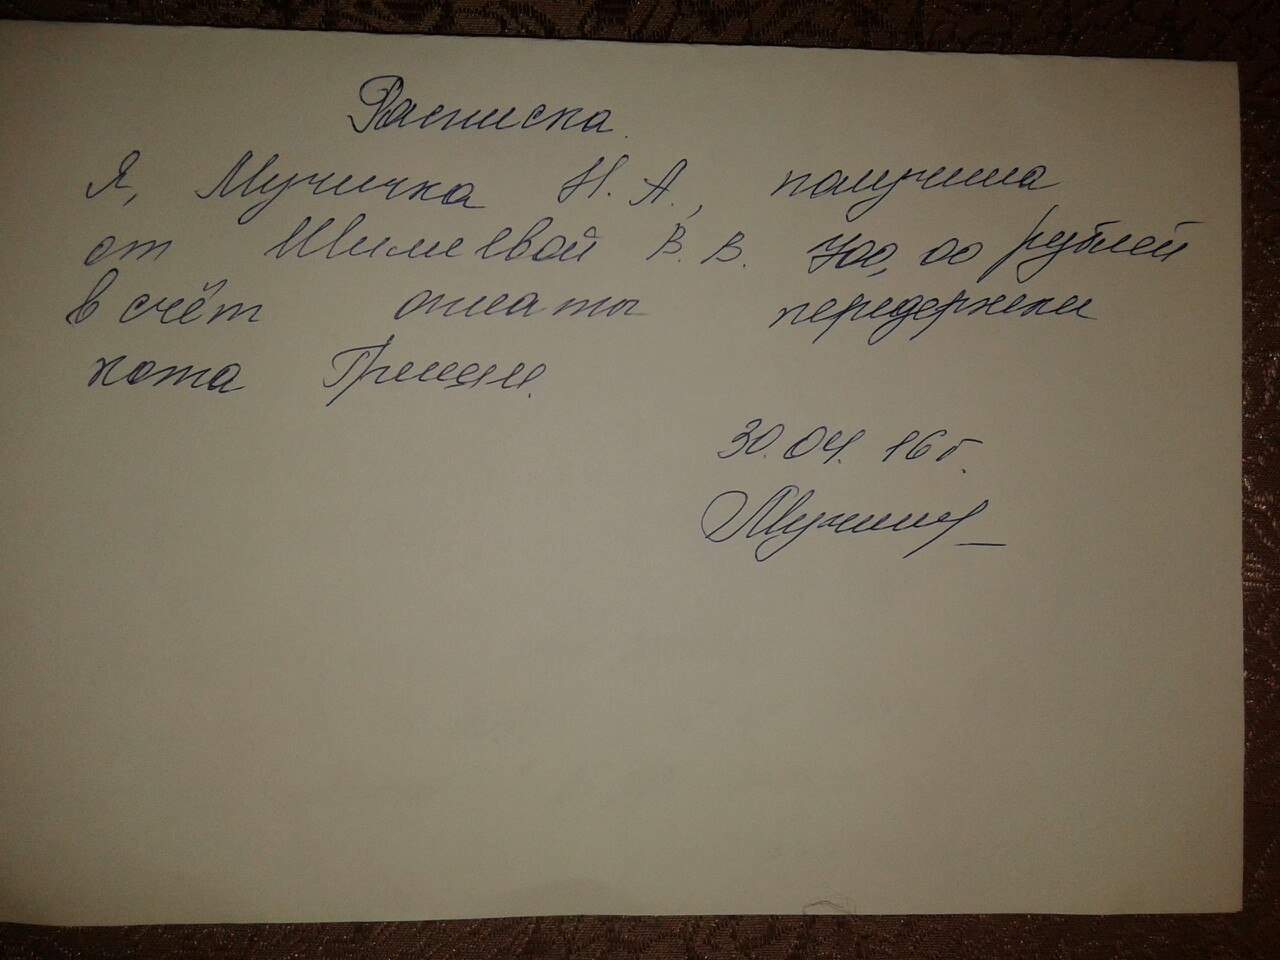 Расписка.
Я, Мучичка Н. А., получила
от Шилневой В. В. 700,00 рублей
в счёт оплаты передержки
кота Гриши.
30.04.16 г.